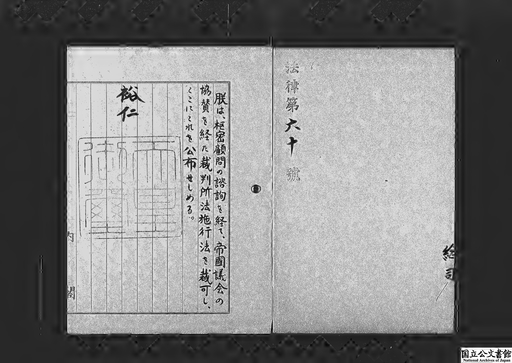 法律第六十號
朕は、枢密顧問の諮詢を経て、帝國議会の
協賛を経た裁判所法施行法を裁可し、
ここにこれを公布せしめる。
裕仁
内閣
国立公文書館
National Archives of Japan